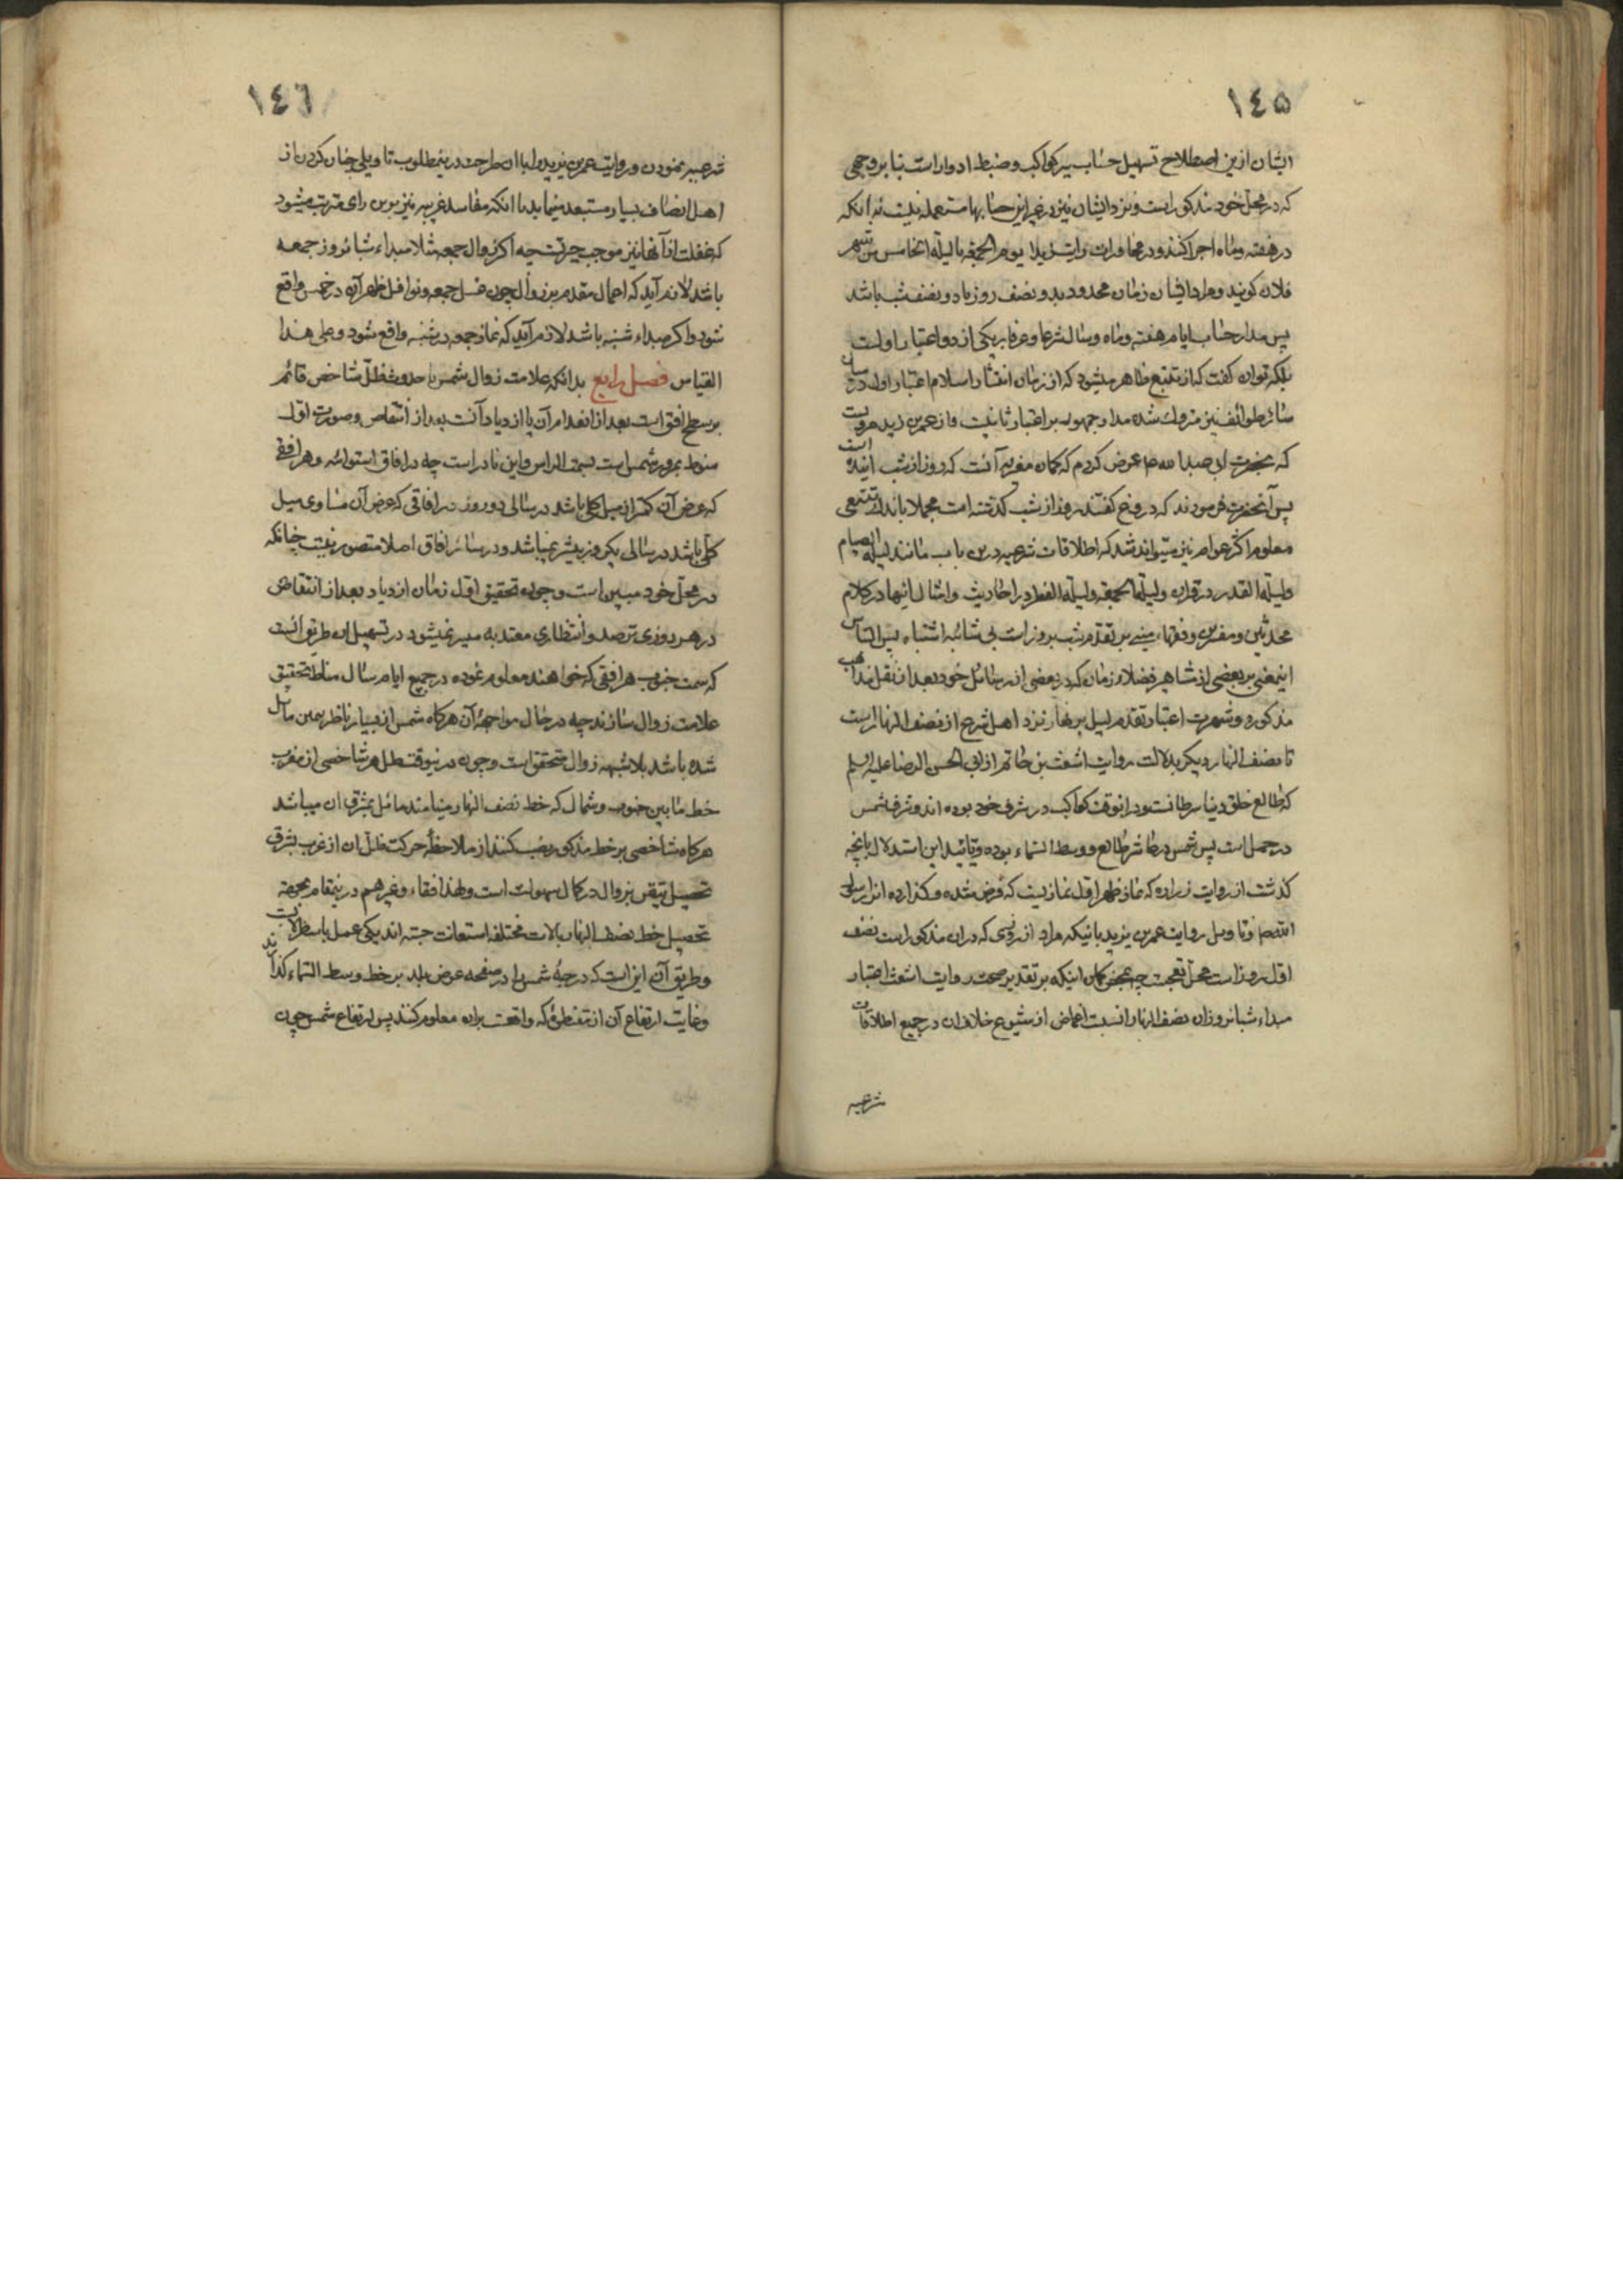 ١٤٥
ایشان ازین اصطلاح تسهیل حساب سیر کواکب و ضبط ادوار است بنا بر وجهی
که در محل خود مذکور است و نزد ایشان نیز در غیر این حسابها مستعمل نیست نه انکه
در هفته و ماه اجرا کنند و در محاورات یوم الجمعه یا لیلة الخامس من شهر
فلان کویند و مراد ایشان زمان محدود بدو نصف روز یا دو نصف شب باشد
پس مدار حساب ایام هفته و ماه و سال شرعا و عرفا بر یکی از دو اعتبار اولست
بلکه توان کفت که از تتبع ظاهر میشود که از زمان انتشار اسلام اعتبار اول در میان
سائر طوائف نیز متروک شده مدار جمهور بر اعتبار ثانیست و از عمر بن یزید مرویست
که بحضرت ابی عبد الله ع عرض کردم که کمان مغیریه آنست که روز از شب آینده است
پس آنحضرت فرمودند که دروغ کفتند روز از شب کذشته است مجملا باندک تتبعی
معلوم اکثر عوام نیز میتواند شد که اطلاقات شرعیه درین باب مانند لیلة الصیام
و لیلة القدر در قران و لیلة الجمعه و لیلة الفطر در احادیث و امثال اینها در کلام
محدثین و مفسرین و فقهاء مبنی بر تقدم شب بر روز است بی شائبه اشتباه پس التباس
اینمعنی بر بعضی از مشاهیر فضلاء زمان که در بعضی از رسائل خود بعد از نقل مذاهب
مذکوره و شهرت اعتبار تقدم لیل بر نهار نزد اهل شرع از نصف النهار است
تا نصف النهار دیکر بدلالت روایت اشعث بن حاتم از ابی الحسن الرضا علیه السلم
که طالع خلق دنیا سرطانست و در انوقت کواکب در شرف خود بوده اند و شرف شمس
در حمل است پس شمس در عاشر طالع و وسط السماء بوده و تائید این استدلال بانچه
کذشت از روایت زراره که نماز ظهر اول نمازیست که فرض شده و کذارده انرا رسول
الله ص و تاویل روایت عمر بن یزید بانیکه مراد از روزی که دران مذکور است نصف
اول روز است محل تعجبست چه بمحض کمان اینکه بر تقدیر صحت روایت اشعث اعتبار
مبداء شبانروز از نصف النهار انسبت اغماض از شیوع خلاف ان در جمیع اطلاقات
شرعیه
١٤٦
شرعیه نمودن و روایت عمر بن یزید را با ان صراحت درینمطلوب تاویلی چنان کردن از
اهل انصاف بسیار مستبعد مینماید با انکه مفاسد غریبه نیز برین رای مترتب میشود
که غفلت از آنها نیز موجب حیرتست چه اکر زوال جمعه مثلا مبداء شبانروز جمعه
باشد لازم آید که اعمال مقدم بر زوال چون غسل جمعه و نوافل ظهر آن در خمیس واقع
شود و اکر مبداء شنبه باشد لازم آید که نماز جمعه در شنبه واقع شود و علی هذا
القیاس فصل رابع بدانکه علامت زوال شمس یا حدوث ظل شاخص قائم
بر سطح افق است بعد از انعدام آن یا ازدیاد آنست بعد از انتقاص و صورت اول
منوط بمرور شمس است بسمت الراس و این نادر است چه در افاق استوائیه و هر افقی
که عرض آن کمتر از میل کلی باشد در سالی دو روز و در افاقی که عرض آن مساوی میل
کلی باشد در سالی یکروز بیشتر نمیباشد و در سائر افاق اصلا متصور نیست چنانکه
در محل خود مبین است و چون تحقیق اول زمان ازدیاد بعد از انتقاص
در هر روزی بی ترصد و انتظاری معتد به میسر نمیشود در تسهیل ان طریق انست
که سمت جنوب هر افقی که خواهند معلوم نموده در جمیع ایام سال مناط تحقیق
علامت زوال سازند چه در حال مواجهه آن هرکاه شمس از یسار ناظر بیمین مائل
شده باشد بلا شبهه زوال متحقق است و چون در نیوقت ظل هر شاخصی از مغرب
خط ما بین جنوب و شمال که خط نصف النهار مینامند مائل بمشرق ان میباشد
هرکاه شاخصی بر خط مذکور نصب کنند از ملاحظه حرکت ظل ان از غرب بشرق
تحصیل تیقن بزوال در کمال سهولت است و لهذا فقهاء و غیرهم درینمقام بجهة
تحصیل خط نصف النهار بالات مختلفه استعانت جسته اند یکی عمل باسطرلابست
و طریق آن این است که درجه شمس را در صفحه عرض بلد بر خط وسط السماء کذارند
و غایت ارتفاع آن از مقنطره که واقعست بران معلوم کنند پس ارتفاع شمس چون